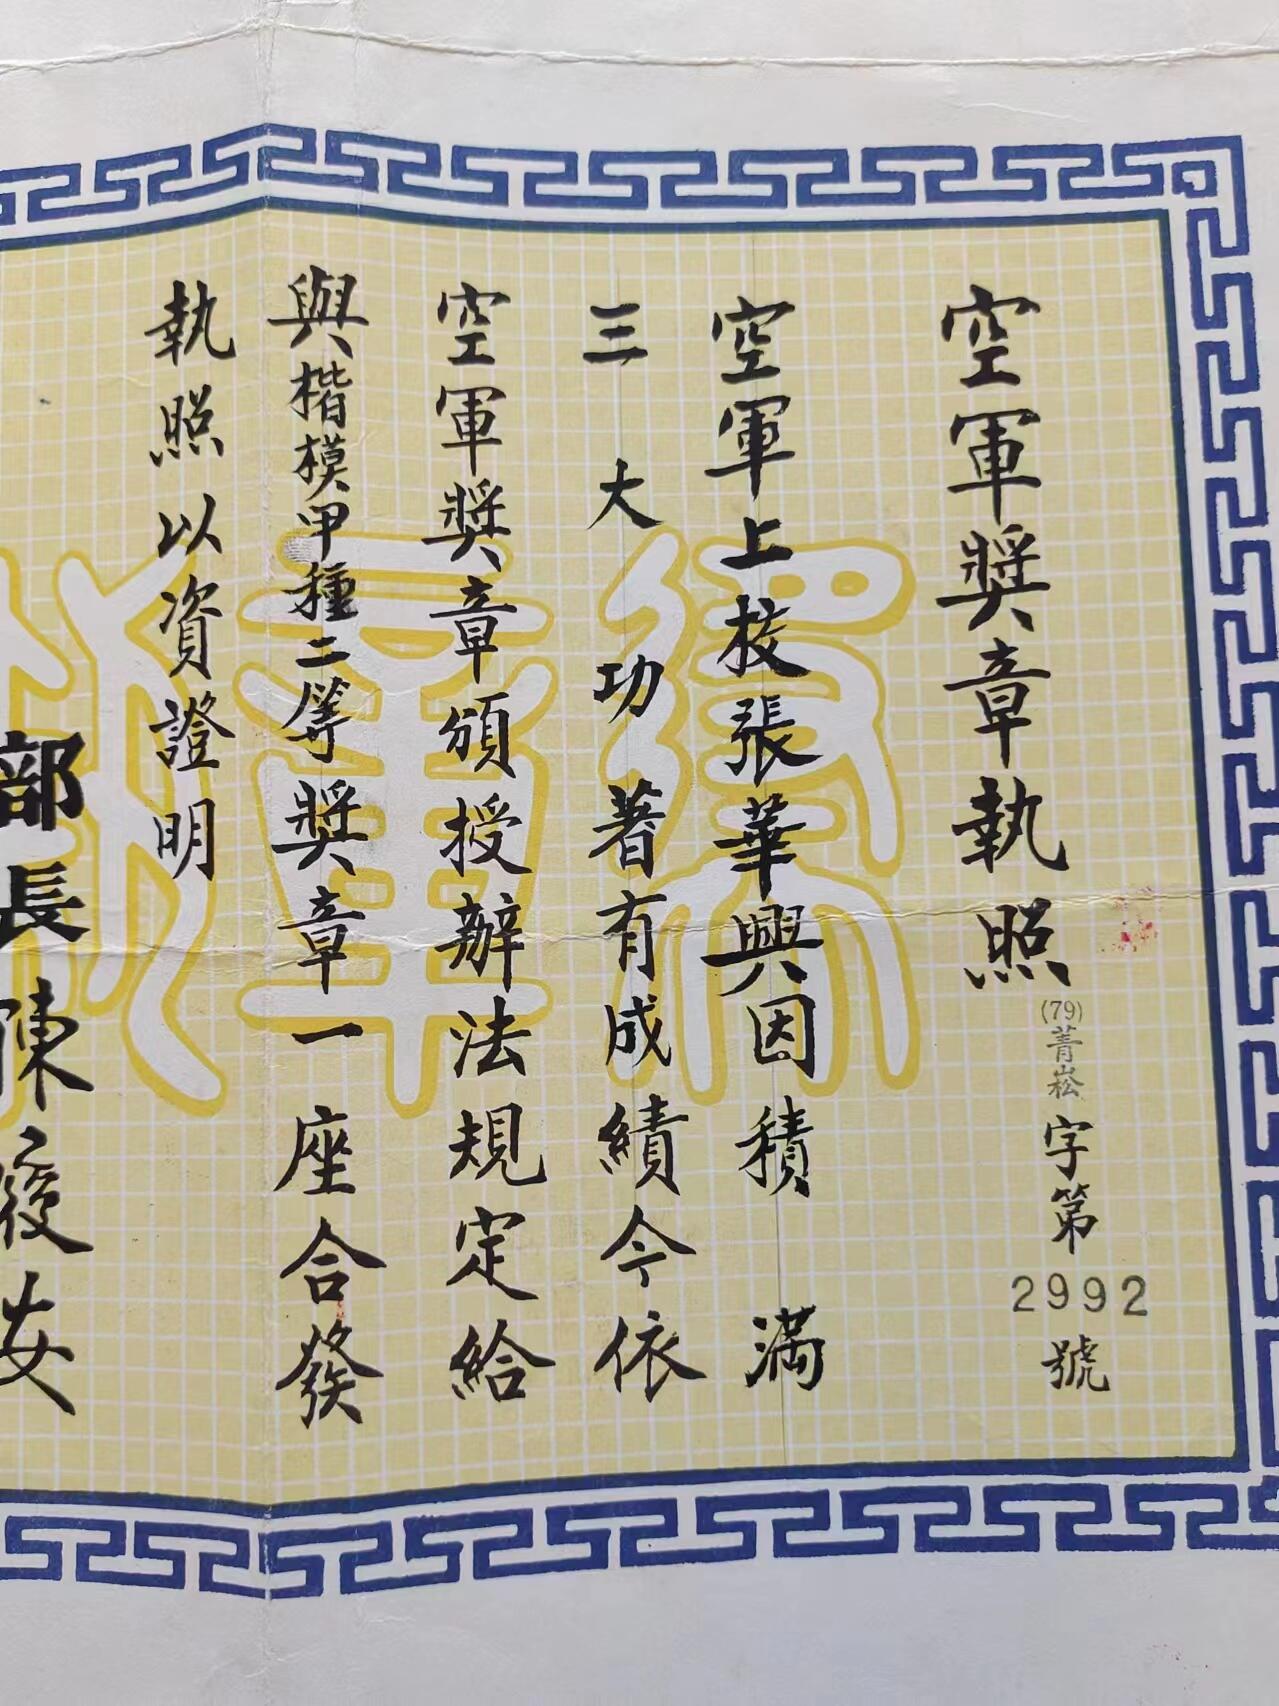 空軍獎章執照
(79)菁崧字第2992號
空軍上校張華興因積滿
三大功著有成績今依
空軍獎章頒授辦法規定給
與楷模甲種二等獎章一座合發
執照以資證明
部長陳